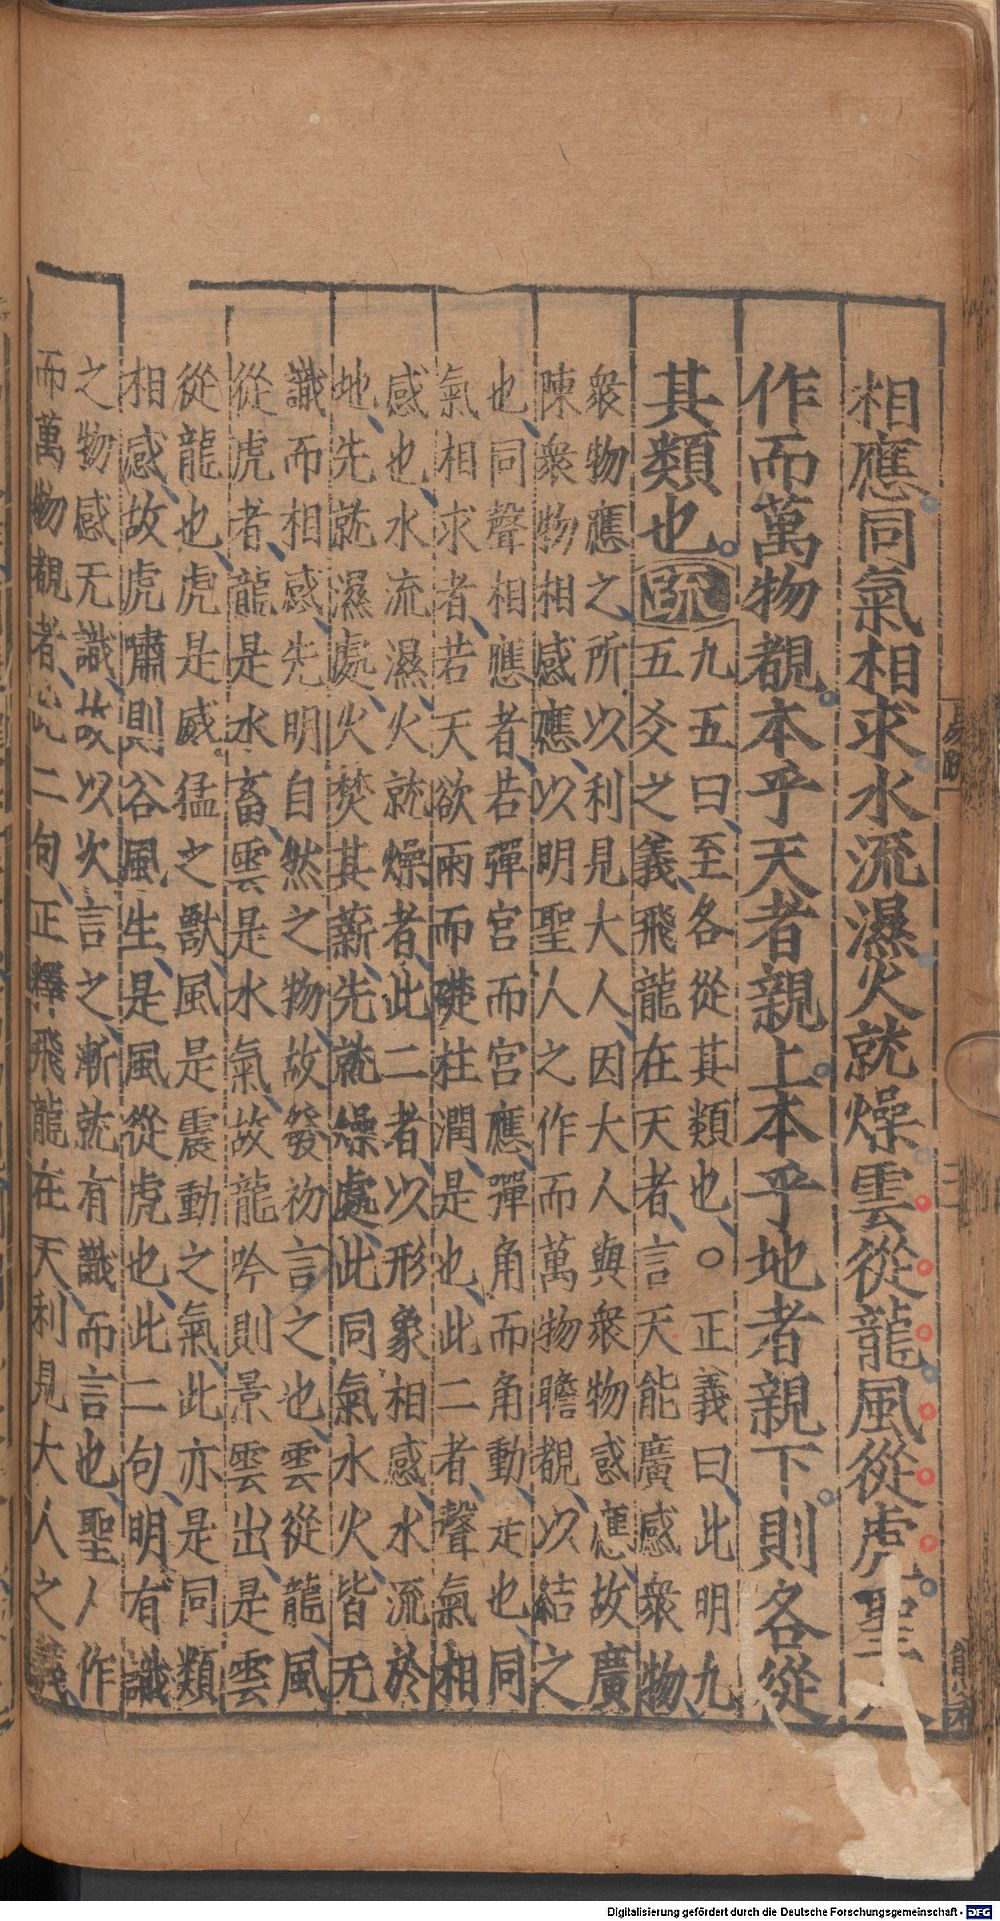 相應同氣相求水流濕火就燥雲從龍風從虎聖人
作而萬物覩本乎天者親上本乎地者親下則各從
其類也疏
九五曰至各從其類也○正義曰此明九
五爻之義飛龍在天者言天能廣感衆物
衆物應之所以利見大人因大人與衆物感應故廣
陳衆物相感應以明聖人之作而萬物瞻覩以結之
也同聲相應者若彈宮而宮應彈角而角動是也同
氣相求者若天欲雨而礎柱潤是也此二者聲氣相
感也水流濕火就燥者此二者以形象相感水流於
地先就濕處火焚其薪先就燥處此同氣水火皆无
識而相感先明自然之物故發初言之也雲從龍風
從虎者龍是水畜雲是水氣故龍吟則景雲出是雲
從龍也虎是威猛之獸風是震動之氣此亦是同類
相感故虎嘯則谷風生是風從虎也此二句明有識
之物感无識故以次言之漸就有識而言也聖人作
而萬物覩者此二句正釋飛龍在天利見大人之義
Digitalisierung gefördert durch die Deutsche Forschungsgemeinschaft - DFG